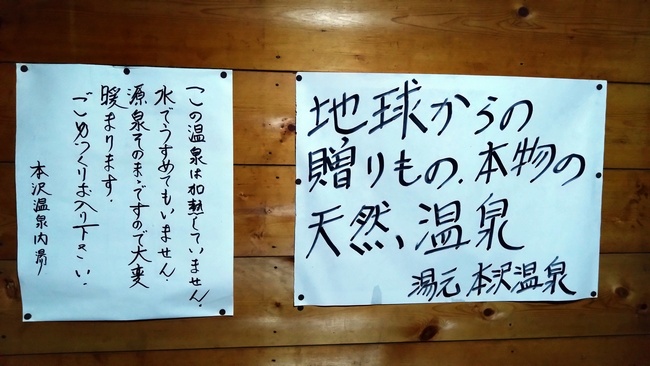 この温泉は加熱していません.
水でうすめてもいません.
源泉そのままですので大変
暖まります.
ごゆっくりお入り下さい.
本沢温泉内湯
地球からの
贈りもの.本物の
天然、温泉
湯元 本沢温泉